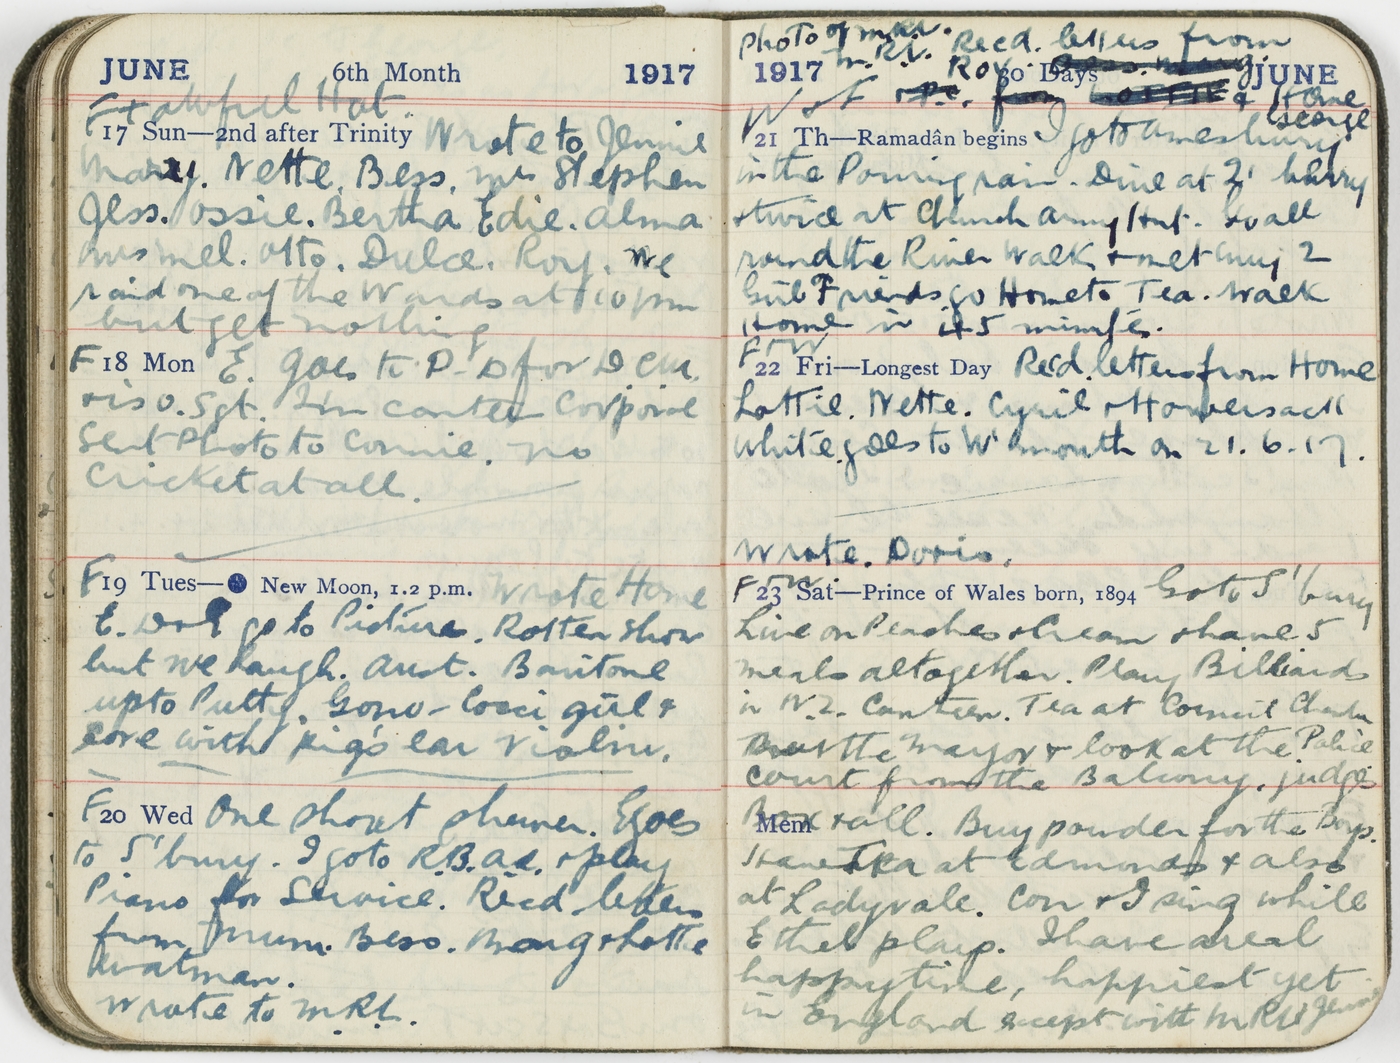 JUNE 6th Month 1917
F+ awful Hot.
17 Sun—2nd after Trinity Wrote to Jennie
Mary. Nette. Bess. Mrs Stephen
Jess. Ossie. Bertha Edie. Alma
Mrs Mel. Otto. Dulce. Roy. We
raid one of the Wards at 10 pm
but get nothing
F 18 Mon E. goes to P.D for D Cm.
Sgt. Corporal
Sent Photo to Connie. no
Cricket at all.
F 19 Tues— New Moon, 1.2 p.m. Wrote Home
E. D & I go to Pictures. Rotten show
but we laugh. Aust. Baritone
up to Putty. Gono-Cocci girl &
cove with pig's ear violin.
F 20 Wed One short shower. E goes
to S'bury. I go to R.B.A.A. & play
Piano for Service. Recd letters
from Mum. Bess. Marg & Lottie
Wrote to M.R.L.
Photo of M.R.L. Recd. letters from
1917 Roy 30 Days JUNE
W & F & Home
George
21 Th—Ramadân begins I go to Amesbury
in the Pouring rain. Dine at 2'
& twice at Church Army Hut. Go all
round the River Walk & met my 2
Girl Friends go Home to Tea. Walk
Home in 45 minutes.
FW
22 Fri—Longest Day Recd. letters from Home
Lottie. Nette. Cyril & Howersack
White goes to W'mouth on 21.6.17.
Wrote. Doris.
FW
23 Sat—Prince of Wales born, 1894 Go to S'bury
Live on Peaches & Cream & have 5
meals altogether. Play Billiards
in N.Z. Canteen. Tea at Council Chamber
Meet the Mayor & look at the Police
Court from the Balcony. Judges
Mem Box & all. Buy powder for the Boys.
Have Tea at Edmonds & also
at Ladyvale. Con & I sing while
Ethel plays. I have a real
happy time, happiest yet
in England except with M.R.L. & Jennie